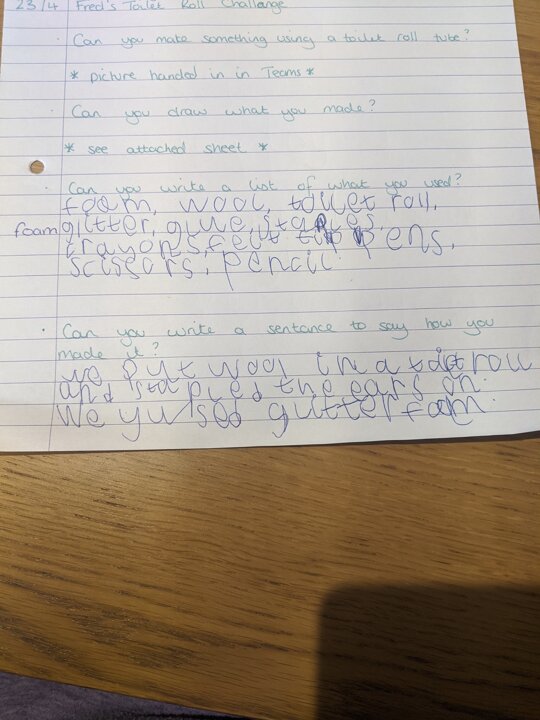 23/4 Fred's Toilet Roll Challenge
· Can you make something using a toilet roll tube?
* picture handed in in Teams *
· Can you draw what you made?
* see attached sheet *
· Can you write a list of what you used?
foam, wool, toilet roll,
foam glitter, glue, staples,
crayons, felt tip pens,
scissors, pencil
· Can you write a sentence to say how you
made it?
we put wool in a toilet roll
and stapled the ears on.
We yused glitter foam.